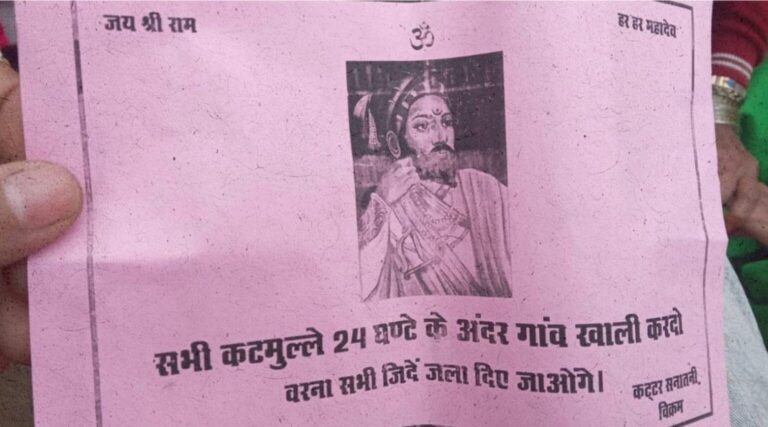 जय श्री राम
हर हर महादेव
ॐ
सभी कटमुल्ले 24 घण्टे के अंदर गांव खाली करदो
वरना सभी जिदें जला दिए जाओगे।
कट्टर सनातनी,
विक्रम